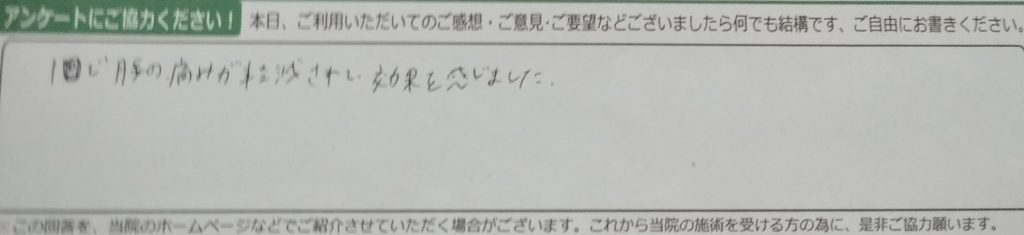 アンケートにご協力ください！ 本日、ご利用いただいてのご感想・ご意見・ご要望などございましたら何でも結構です、ご自由にお書きください。
1回で の痛みが軽減され 効果を感じました.
この回答を、当院のホームページなどでご紹介させていただく場合がございます。これから当院の施術を受ける方の為に、是非ご協力願います。